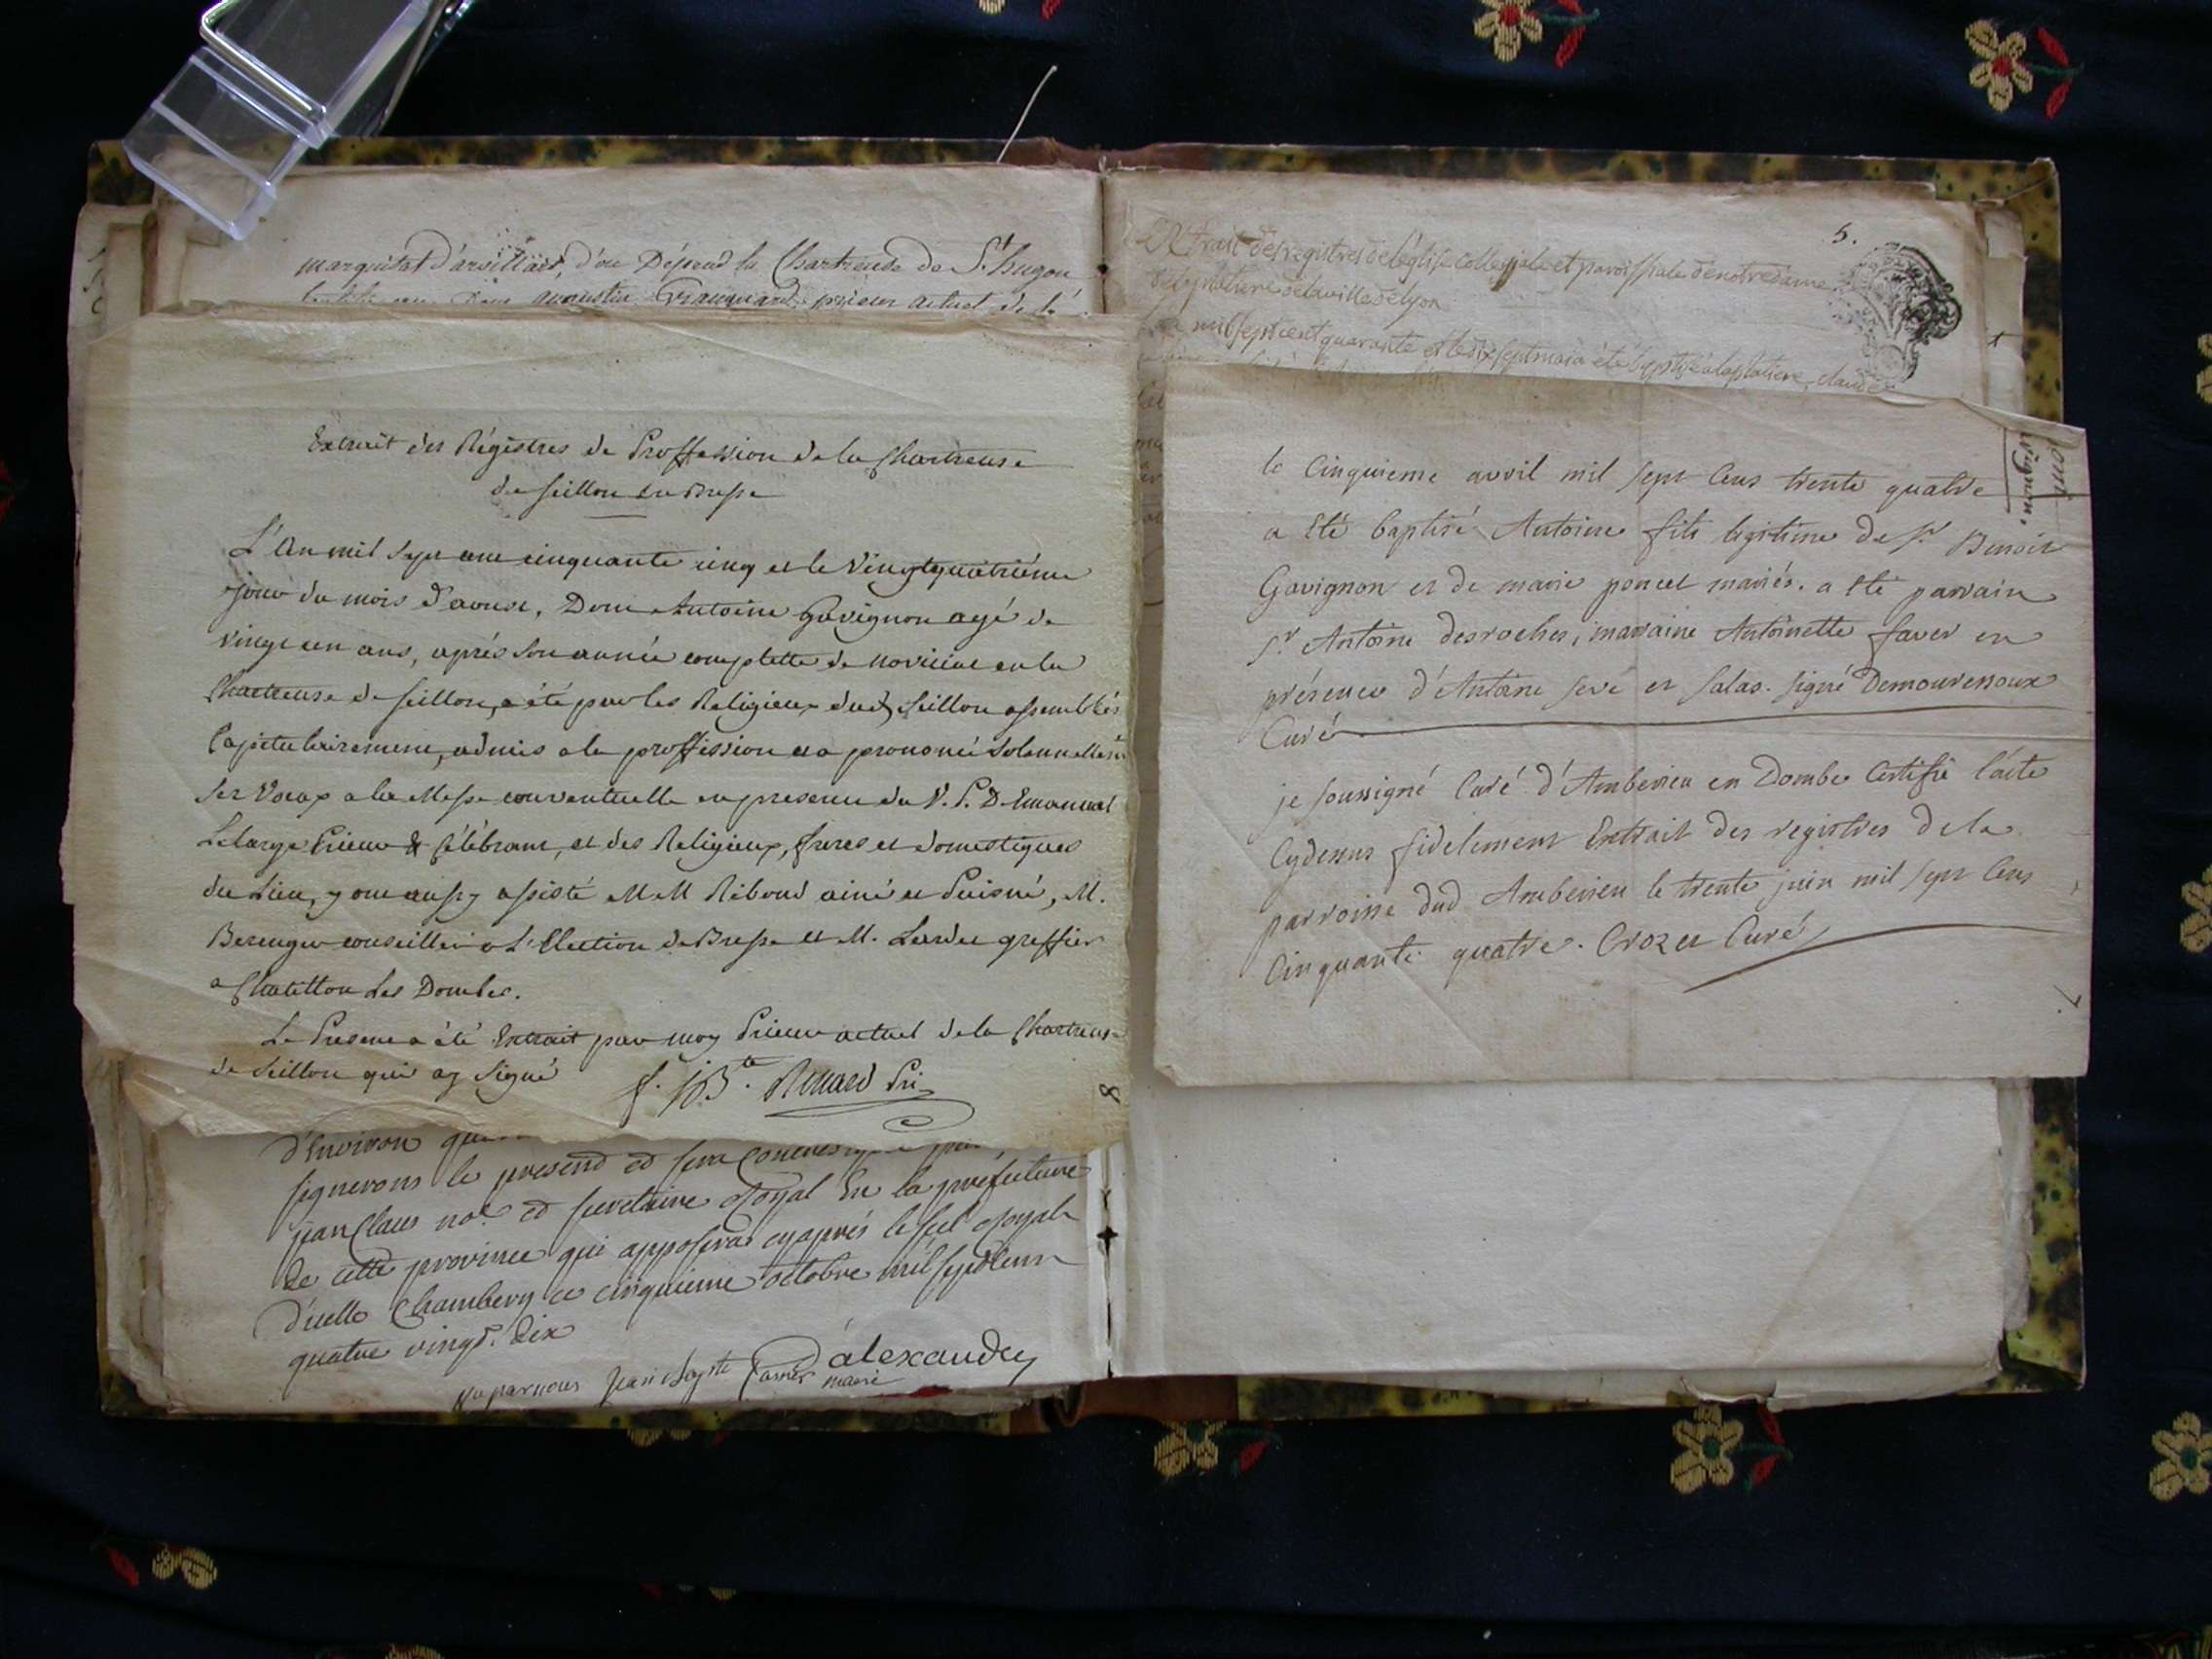 marquisat d'arvillard, d'ou Dépend la Chartreuse de St hugon
augustin prieur actuel de la
Extrait des Régistres de Proffession de la Chartreuse
de seillon en Bresse
L'An mil sept cent cinquante cinq et le Vingtquatriéme
jour du mois d'aoust, Dom Antoine Gavignon agé de
vingt un ans, aprés son année complette de noviciat en la
Chartreuse de seillon, a été par les Religieux dud. seillon assemblés
Capitulairement, admis a la proffession et a prononcé solennellem.t
ses Vœux a la Messe conventuelle en presence du V. P. D. Emanuel
Lelarge Prieur & Célébrant, et des Religieux, freres et domestiques
du Lieu, y ont aussy assisté MM Riboud ainé et Puisné, M.
Berenger conseiller a L'Election de Bresse et M. greffier
a Chatillon les Dombes.
Le Present a été Extrait par moy Prieur actuel de la Chartreuse
de Seillon qui ay signé f. J. B.te Renard Pri
8
d'Environ
signerons le present et sera Contresigné par
jean Claus not. et secretaire Royal En la prefecture
de cette province qui apposera cyaprés le scel Royal
d'icelle Chambery ce cinquieme octobre mil sept cent
quatre vingt. dix
d'alexandry
Vu par nous Jean Bapte
5.
Extrait des registres de l'eglise collegiale et paroissiale de notre dame
de la platiere de la ville de lyon
mil sept cent quarante et le dix sept mai a été baptisé a la platiere, claude
le Cinquieme avril mil sept Cens trente quatre
a Eté baptisé Antoine fils legitime de Sr Benoit
Gavignon et de marie poncet mariés. a Eté parrain
Sr Antoine desroches, marraine Antoinette faver en
présence d'Antoine sevé et salas. signé Demouressoux
Curé
je soussigné Curé d'Amberieu en Dombe Certifie l'acte
Cydessus fidelement Extrait des registres de la
parroisse dud Amberieu le trente juin mil sept Cens
Cinquante quatre. Crozet Curé
7.